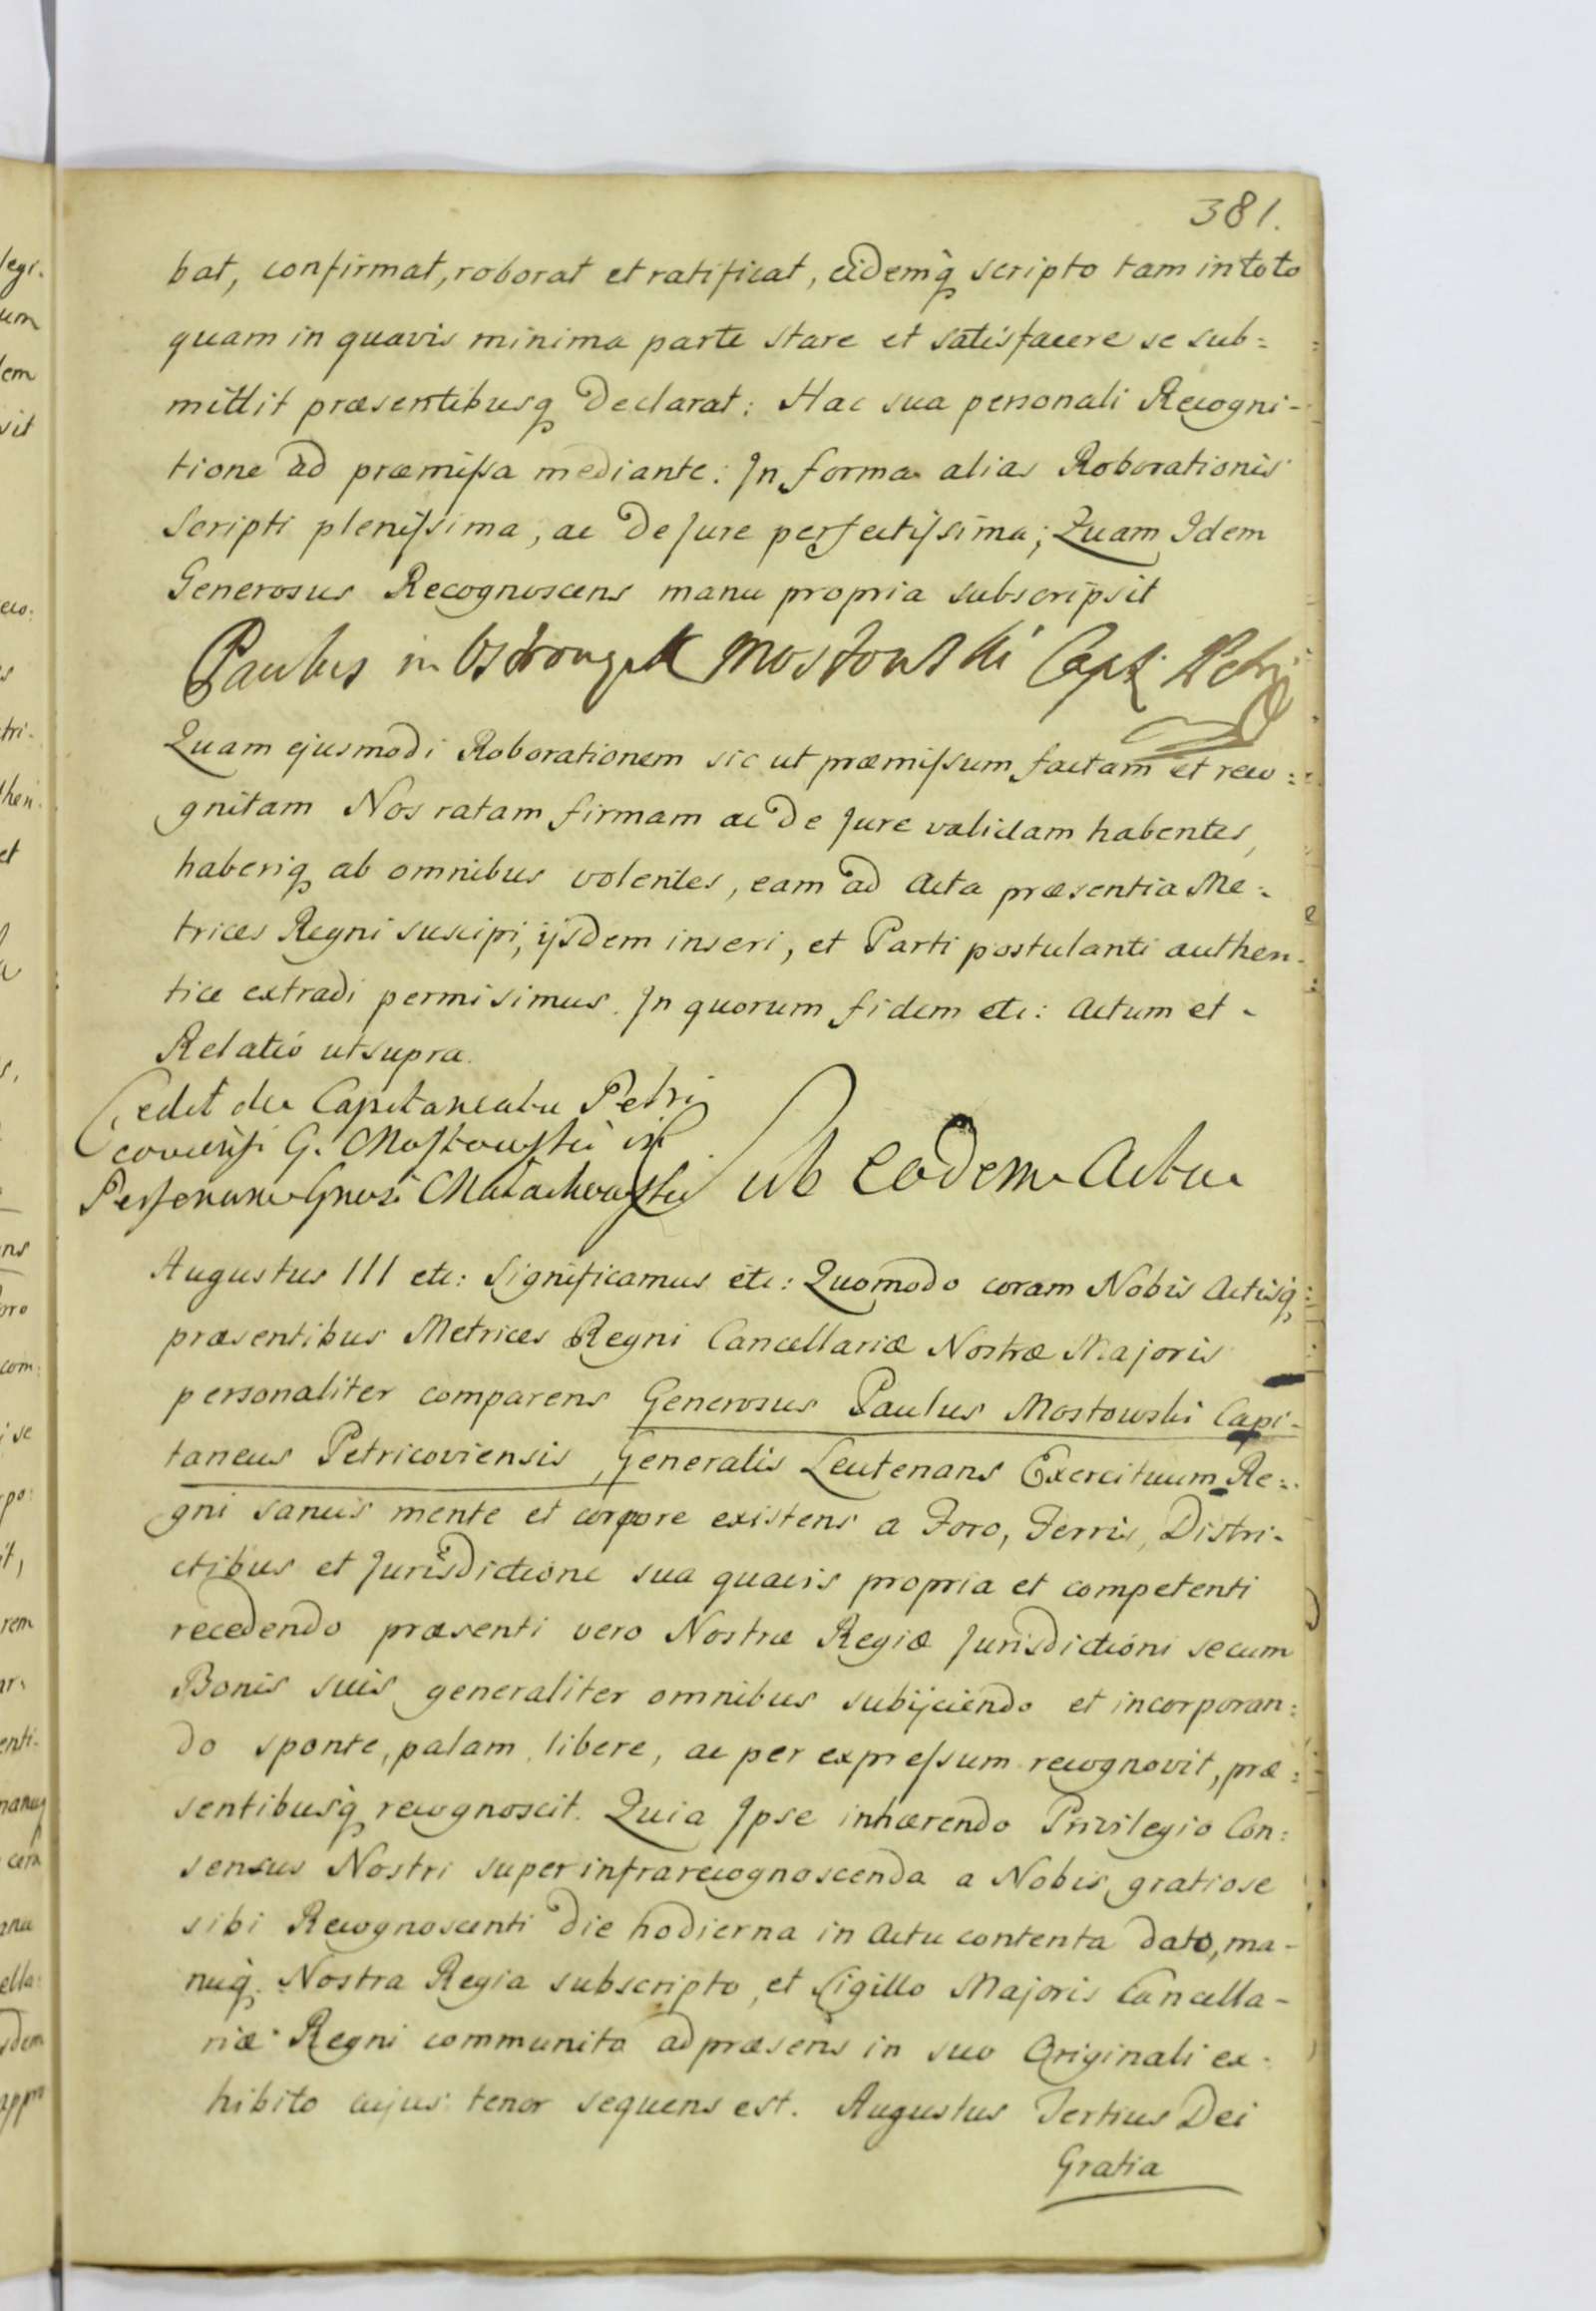 381.
bat, confirmat, roborat et ratificat, eidemq̀ scripto tam in toto
quam in quavis minima parte stare et satisfacere se sub=
mittit præsentibusq Declarat: Hac sua personali Recogni-
tione ad præmissa mediante: In forma alias Roborationis
Scripti plenissima, ac De Jure perfectissima; Quam Idem
Generosus Recognoscens manu propria subscripsit
Paulus in Mostowski Capt Petri
Quam ejusmodi Roborationem sic ut præmissum factam et reco=
gnitam Nos ratam firmam ac De Jure validam habentes,
haberiq ab omnibus volentes, eam ad Acta præsentia Me=
trices Regni suscipi, ijsdem inseri, et Parti postulanti authen-
tice extradi permisimus. In quorum fidem etc: Actum et -
Relatio ut supra.
Cedit de Capitaneatu Petri
coviensi G. Mostowski in
Personam Gnosi Małachowski
Sub eodem Actu
Augustus III etc: Significamus etc: Quomodo coram Nobis Actisq̀:
præsentibus Metrices Regni Cancellariæ Nostræ Majoris
personaliter comparens Generosus Paulus Mostowski Capi-
taneus Petricoviensis, Generalis Leutenans Exercituum Re=
gni sanus mente et corpore existens a Foro, Terris, Distri-
ctibus et Jurisdictione sua quavis propria et competenti
recedendo præsenti vero Nostræ Regiæ Jurisdictioni se cum
Bonis suis generaliter omnibus subijciendo et incorporan=
do sponte, palam, libere, ac per expressum recognovit, præ=
sentibusq̀ recognoscit. Quia Ipse inhærendo Privilegio Con=
sensus Nostri super infrarecognoscenda a Nobis gratiose
sibi Recognoscenti Die hodierna in Actu contenta Dato, ma-
nuq̀. Nostra Regia subscripto, et Sigillo Majoris Cancella-
riæ Regni communito ad præsens in suo Originali ex-
hibito cujus tenor sequens est. Augustus Tertius Dei
Gratia